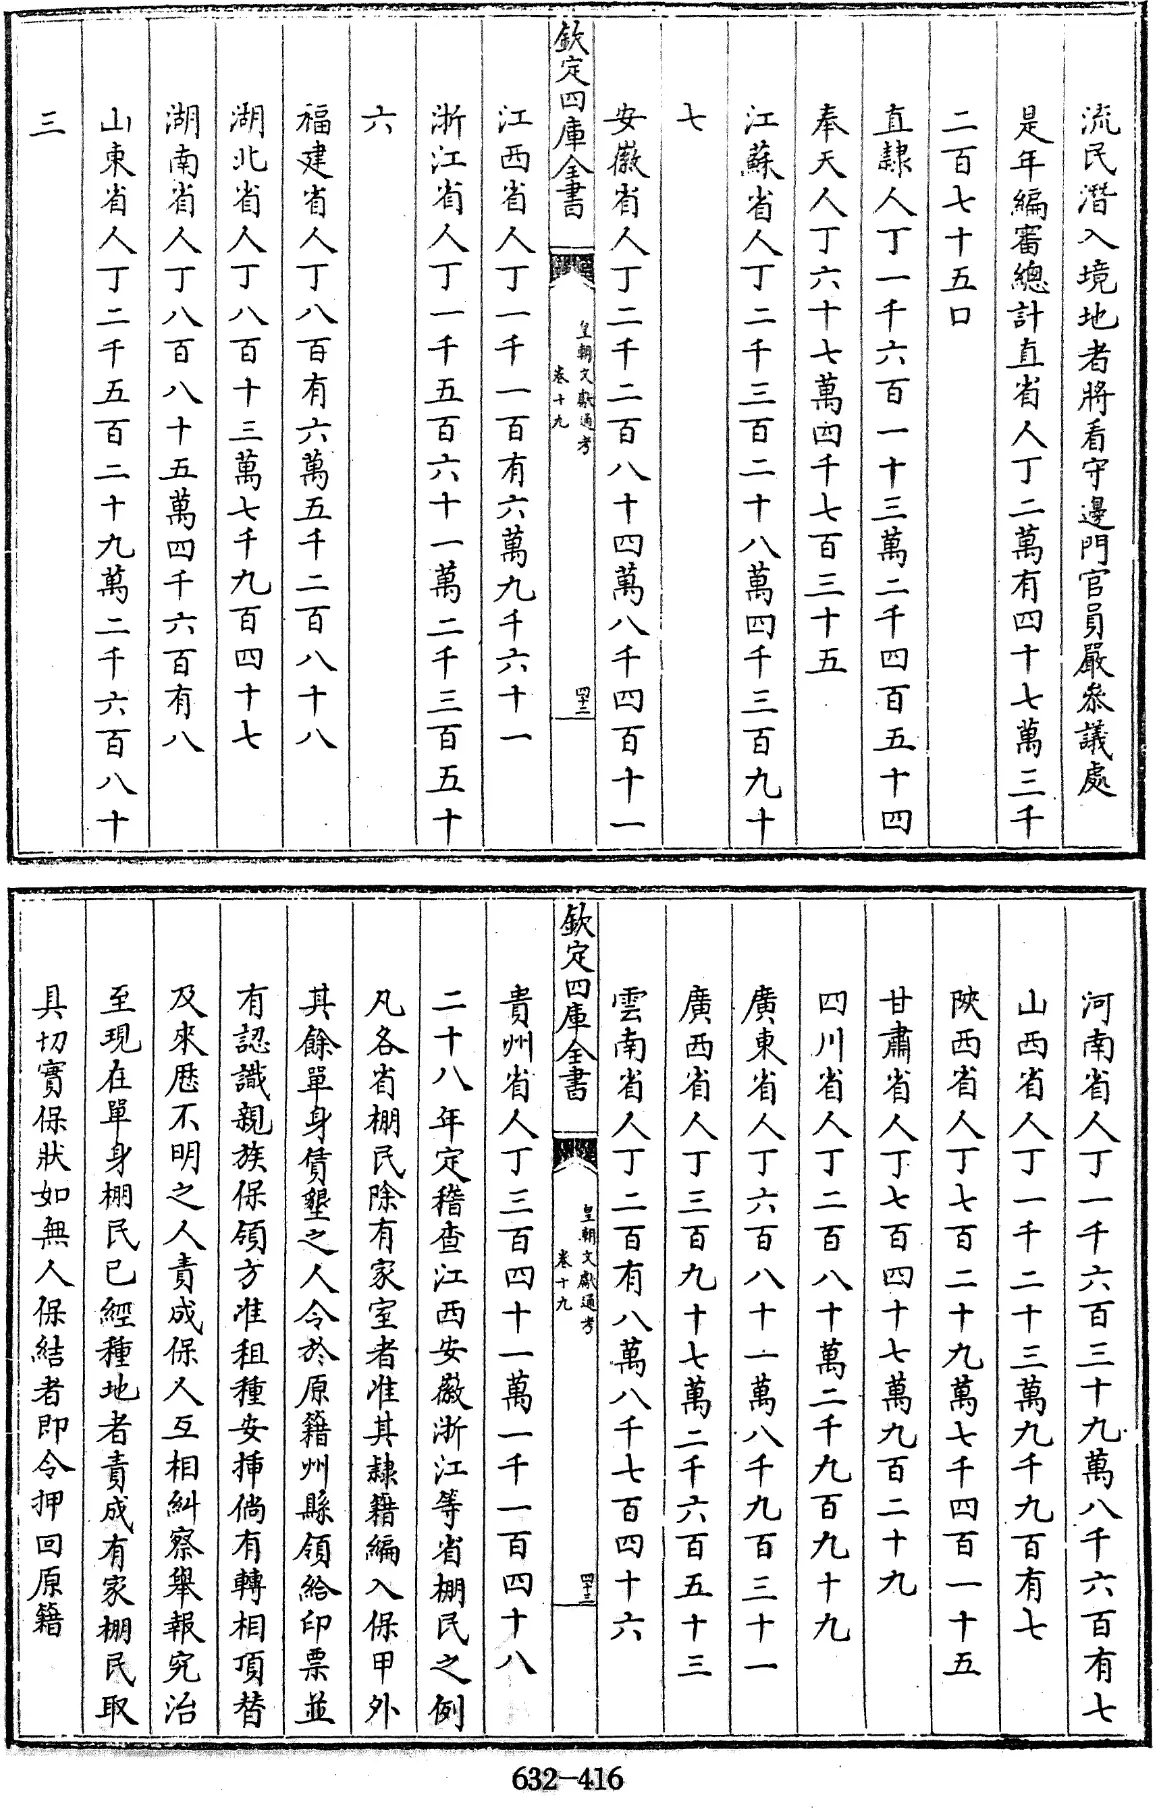 流民潛入境地者將看守邊門官員嚴叅議處
是年編審總計直省人丁二萬有四十七萬三千
二百七十五口
直隸人丁一千六百一十三萬二千四百五十四
奉天人丁六十七萬四千七百三十五
江蘇省人丁二千三百二十八萬四千三百九十
七
安徽省人丁二千二百八十四萬八千四百十一
欽定四庫全書
皇朝文獻通考
卷十九
四十二
江西省人丁一千一百有六萬九千六十一
浙江省人丁一千五百六十一萬二千三百五十
六
福建省人丁八百有六萬五千二百八十八
湖北省人丁八百十三萬七千九百四十七
湖南省人丁八百八十五萬四千六百有八
山東省人丁二千五百二十九萬二千六百八十
三
河南省人丁一千六百三十九萬八千六百有七
山西省人丁一千二十三萬九千九百有七
陜西省人丁七百二十九萬七千四百一十五
甘肅省人丁七百四十七萬九百二十九
四川省人丁二百八十萬二千九百九十九
廣東省人丁六百八十一萬八千九百三十一
廣西省人丁三百九十七萬二千六百五十三
雲南省人丁二百有八萬八千七百四十六
欽定四庫全書
皇朝文獻通考
卷十九
四十三
貴州省人丁三百四十一萬一千一百四十八
二十八年定稽查江西安徽浙江等省棚民之例
凡各省棚民除有家室者准其隸籍編入保甲外
其餘單身賃墾之人令於原籍州縣領給印票並
有認識親族保領方准租種安揷倘有轉相頂替
及來歷不明之人責成保人互相糾察舉報究治
至現在單身棚民已經種地者責成有家棚民取
具切實保狀如無人保結者即令押回原籍
632-416